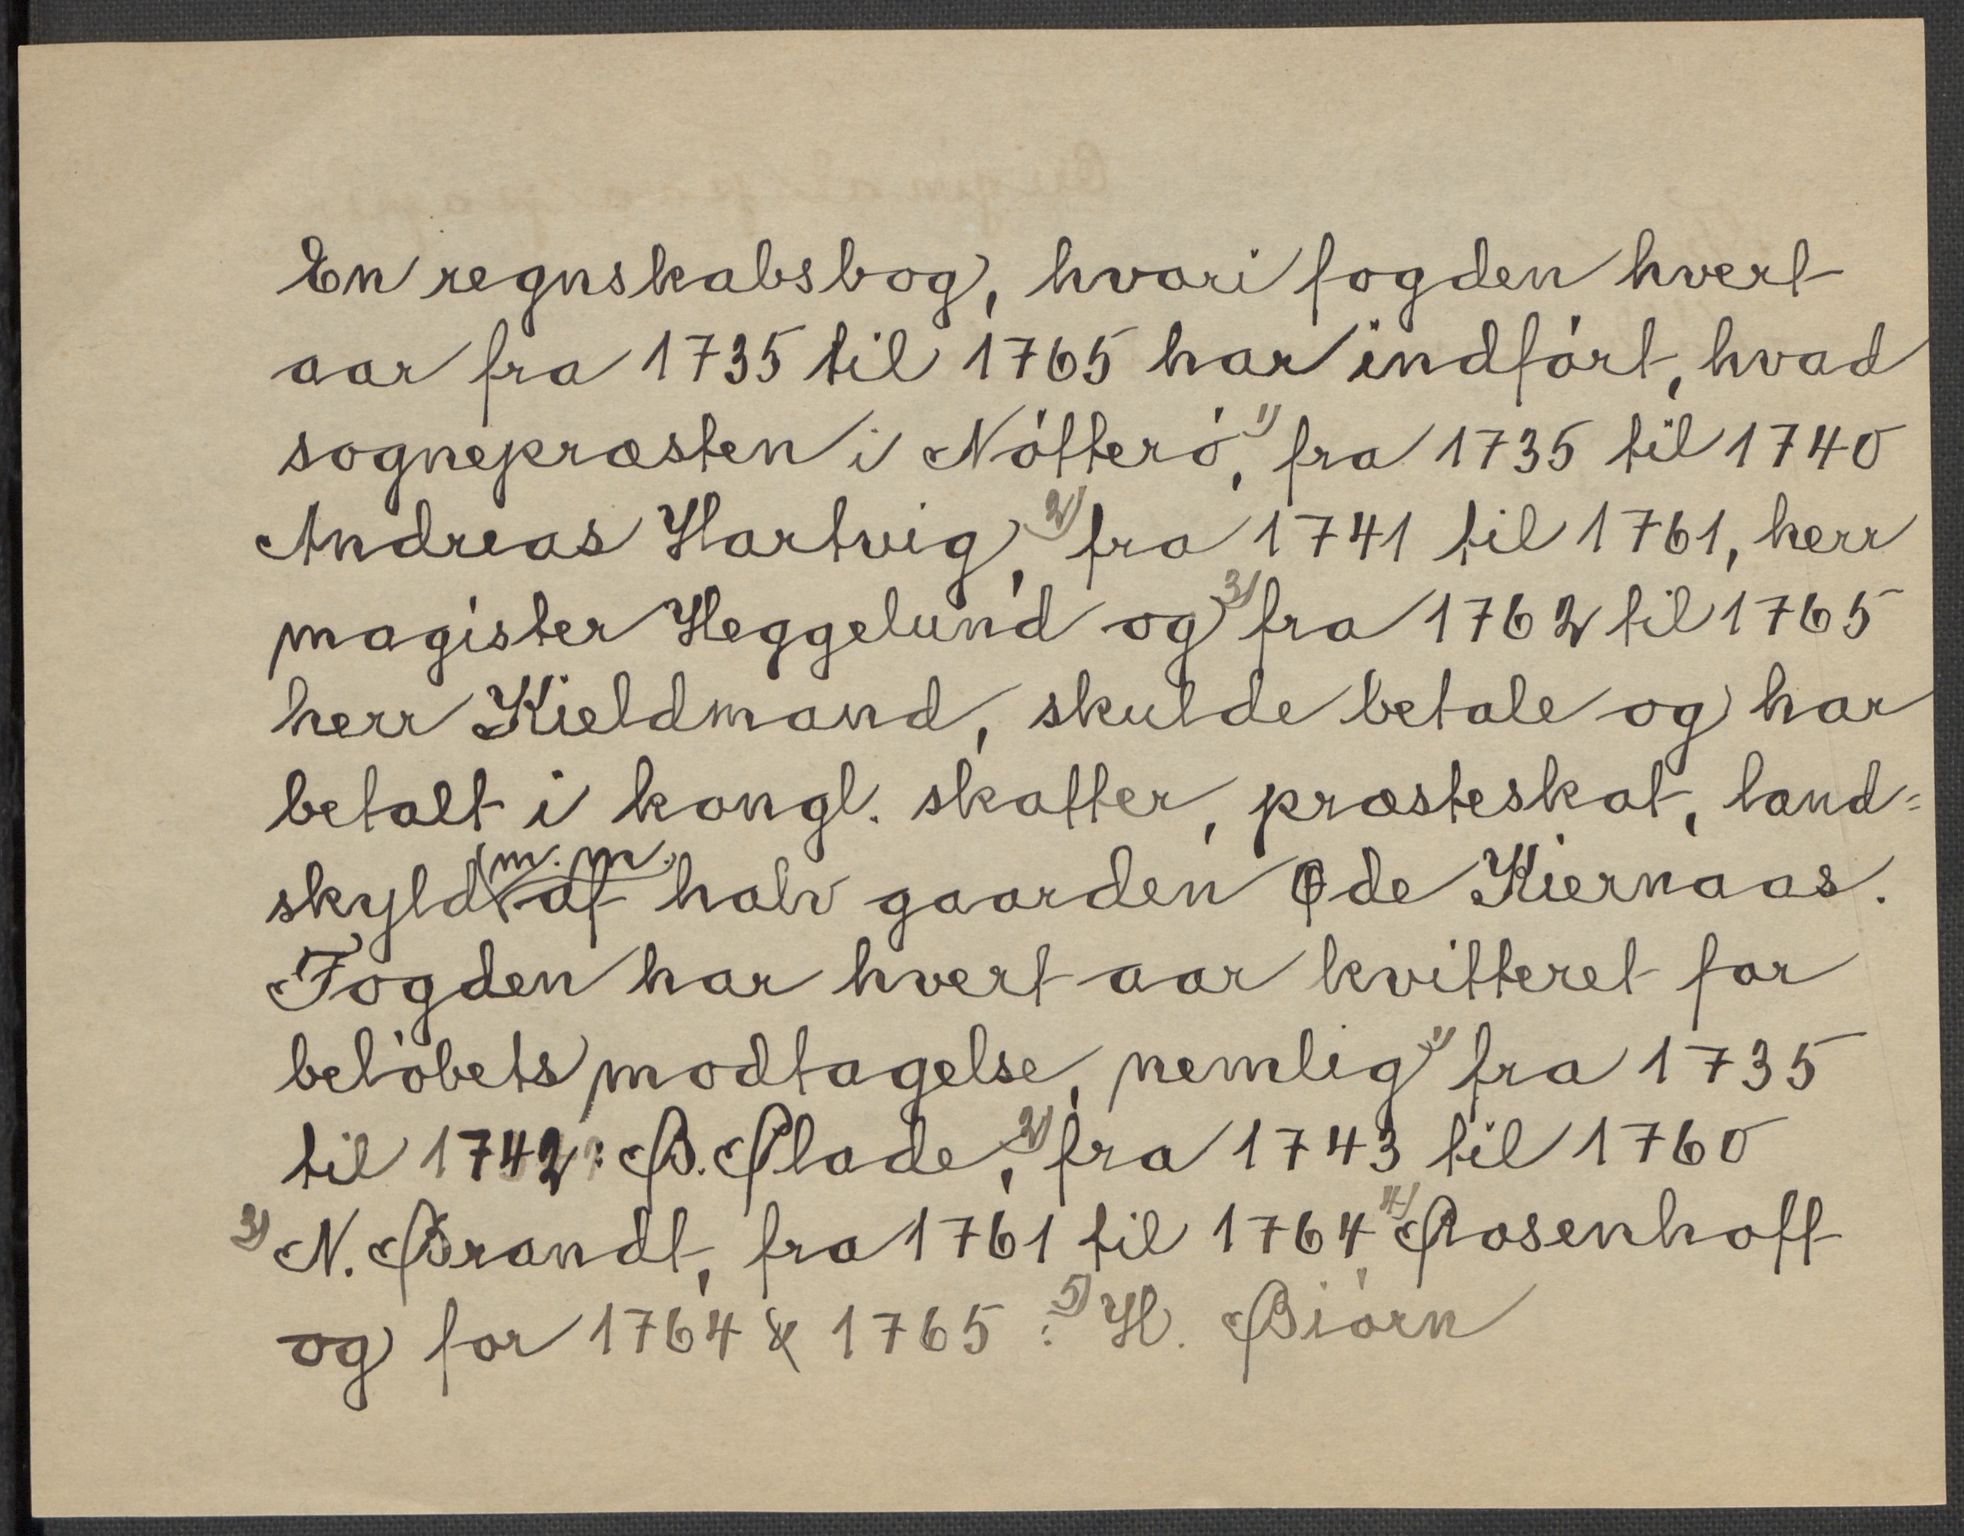 En regnskabsbog, hvori fogden hvert
aar fra 1735 til 1765 har indført, hvad
sognepræsten i Nótteró, 1) fra 1735 til 1740
Andreas Hartvig, 2) fra 1741 til 1761, herr
magister Heggelund og 3) fra 1762 til 1765
herr Kieldmand, skulde betale og har
betalt i kongl. skatter, præsteskat, land=
skyld m.m. af halv gaarden Øde Kiernaas.
Fogden har hvert aar kvitteret for
belóbets modtagelse, nemlig 1) fra 1735
til 1742: B. Plade, 2) fra 1743 til 1760
3) N. Brandt, fra 1761 til 1764 4) Rosenhoff
og for 1764 & 1765: 5) H. Biórn